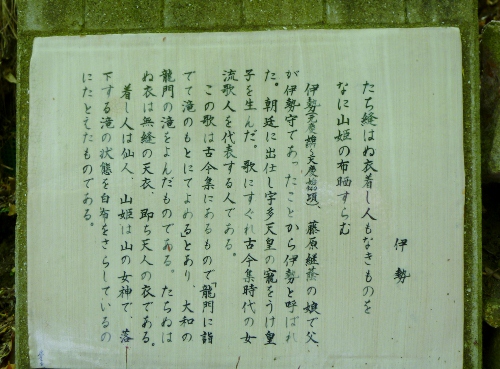 伊勢
たち縫はぬ衣着し人もなきものを
なに山姫の布晒すらむ
伊勢、藤原継蔭の娘で父、
が伊勢守であったことから伊勢と呼ばれ
た。朝廷に出仕し宇多天皇の寵をうけ皇
子を生んだ。歌にすぐれ古今集時代の女
流歌人を代表する人である。
この歌は古今集にあるもので「龍門に詣
でて滝のもとにてよめるとあり、大和の
龍門の滝をよんだものである。たちぬは
ぬ衣は無縫の天衣、即ち天人の衣である。
着し人は仙人、山姫は山の女神で、落
下する滝の状態を白布をさらしているの
にたとえたものである。